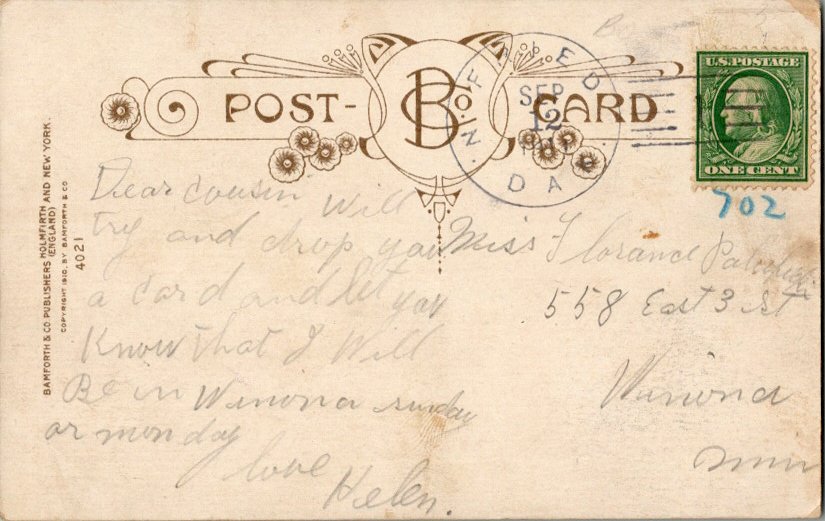 POST-CARD
B Co.
U.S. POSTAGE
ONE CENT
702
SEP
12
N. DAK
BAMFORTH & CO. PUBLISHERS HOLMFIRTH AND NEW YORK.
(ENGLAND)
COPYRIGHT 1910, BY BAMFORTH & CO
4021
Dear cousin Will
try and drop you
a card and let you
know that I Will
Be in Winona sunday
or monday
love
Helen.
Miss Florance
558 East 3 st
Winona
minn